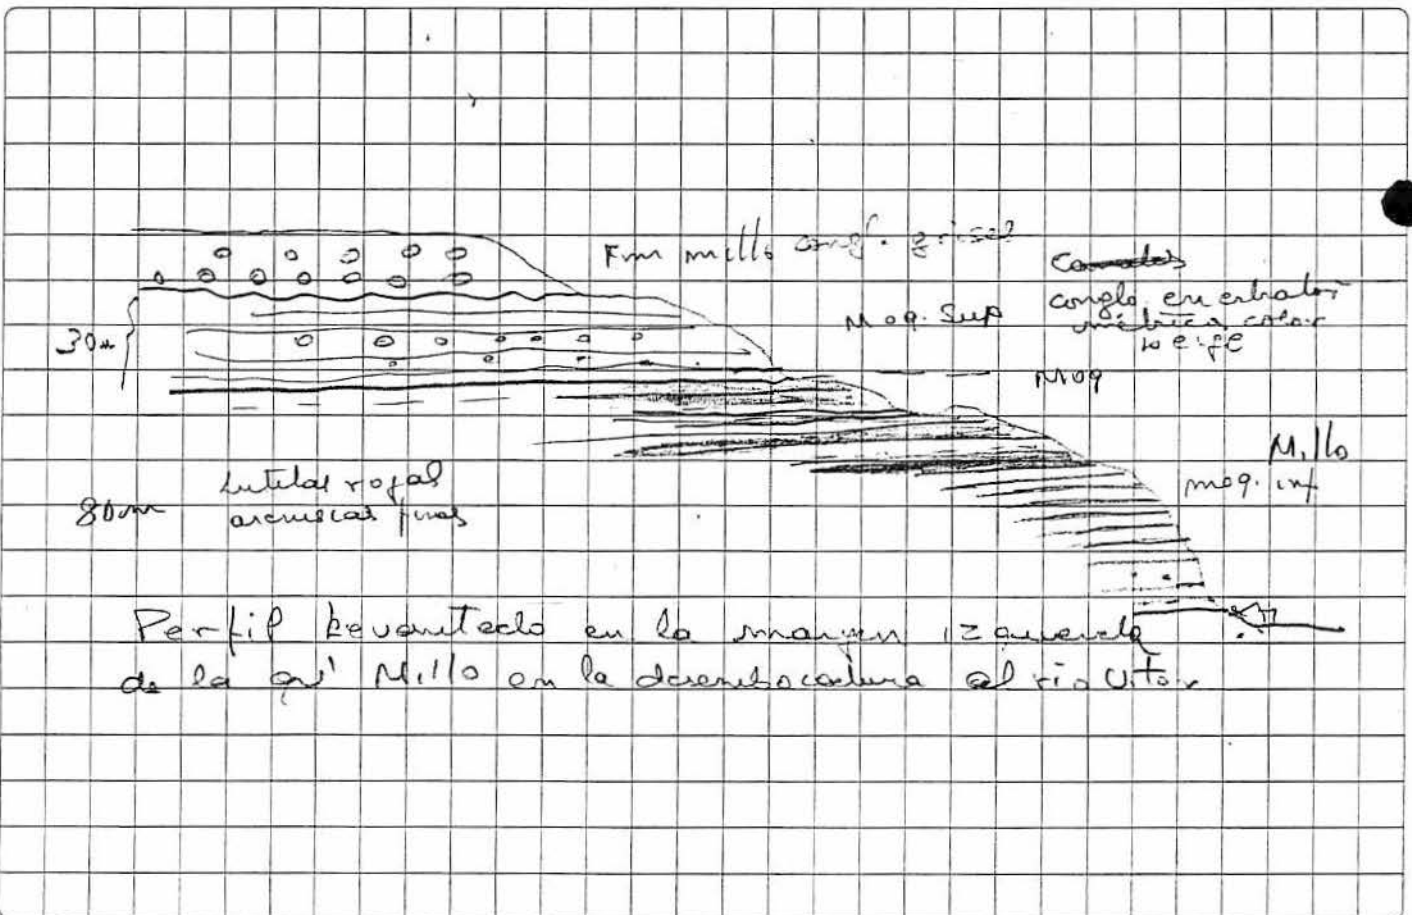 Fm millo congl. grises
Canales
conglo. en estratos
métrico color
beige
Moq. Sup
30m
Moq
Millo
moq. inf
Lutitas rojas
areniscas finas
80m
Perfil levantado en la margen izquierda
de la qda Millo en la desembocadura al rio Vitor